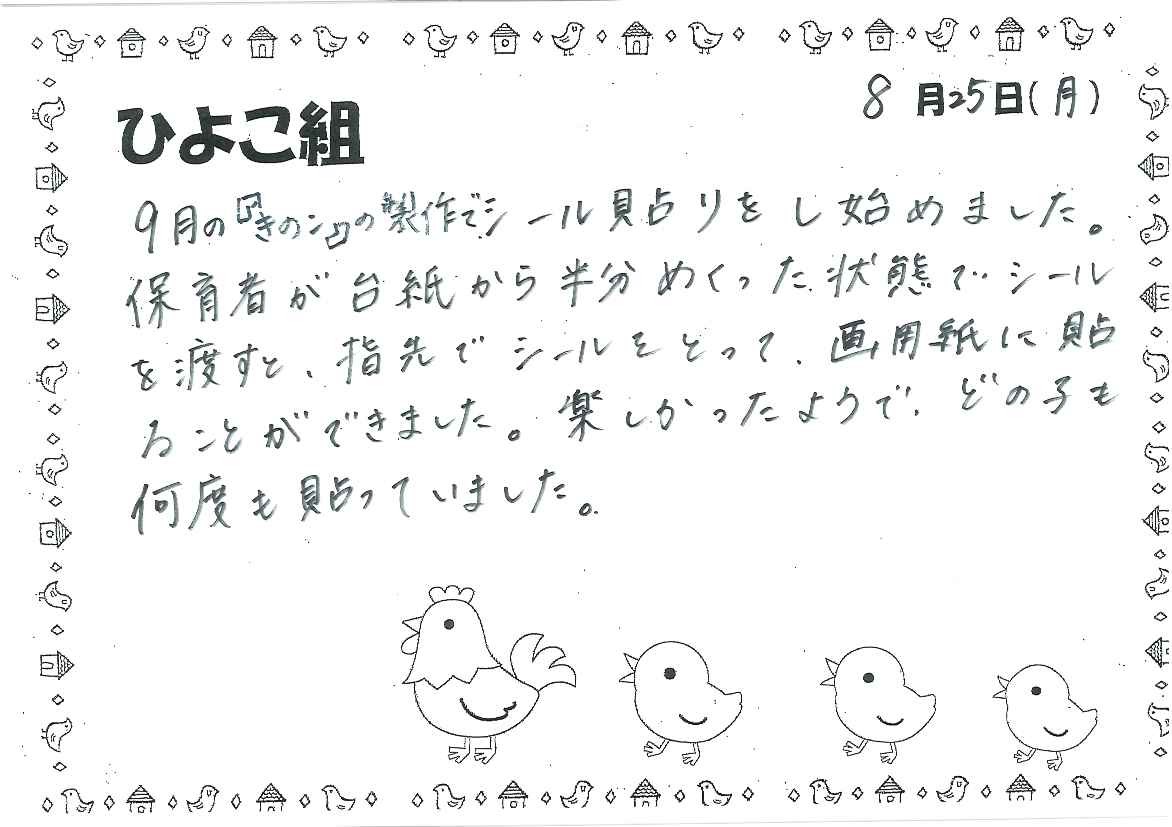 8月25日(月)
ひよこ組
9月の『きのこ』の製作でシール貼りをし始めました。
保育者が台紙から半分めくった状態でシール
を渡すと、指先でシールをとって、画用紙に貼
ることができました。楽しかったようで、どの子も
何度も貼っていました。